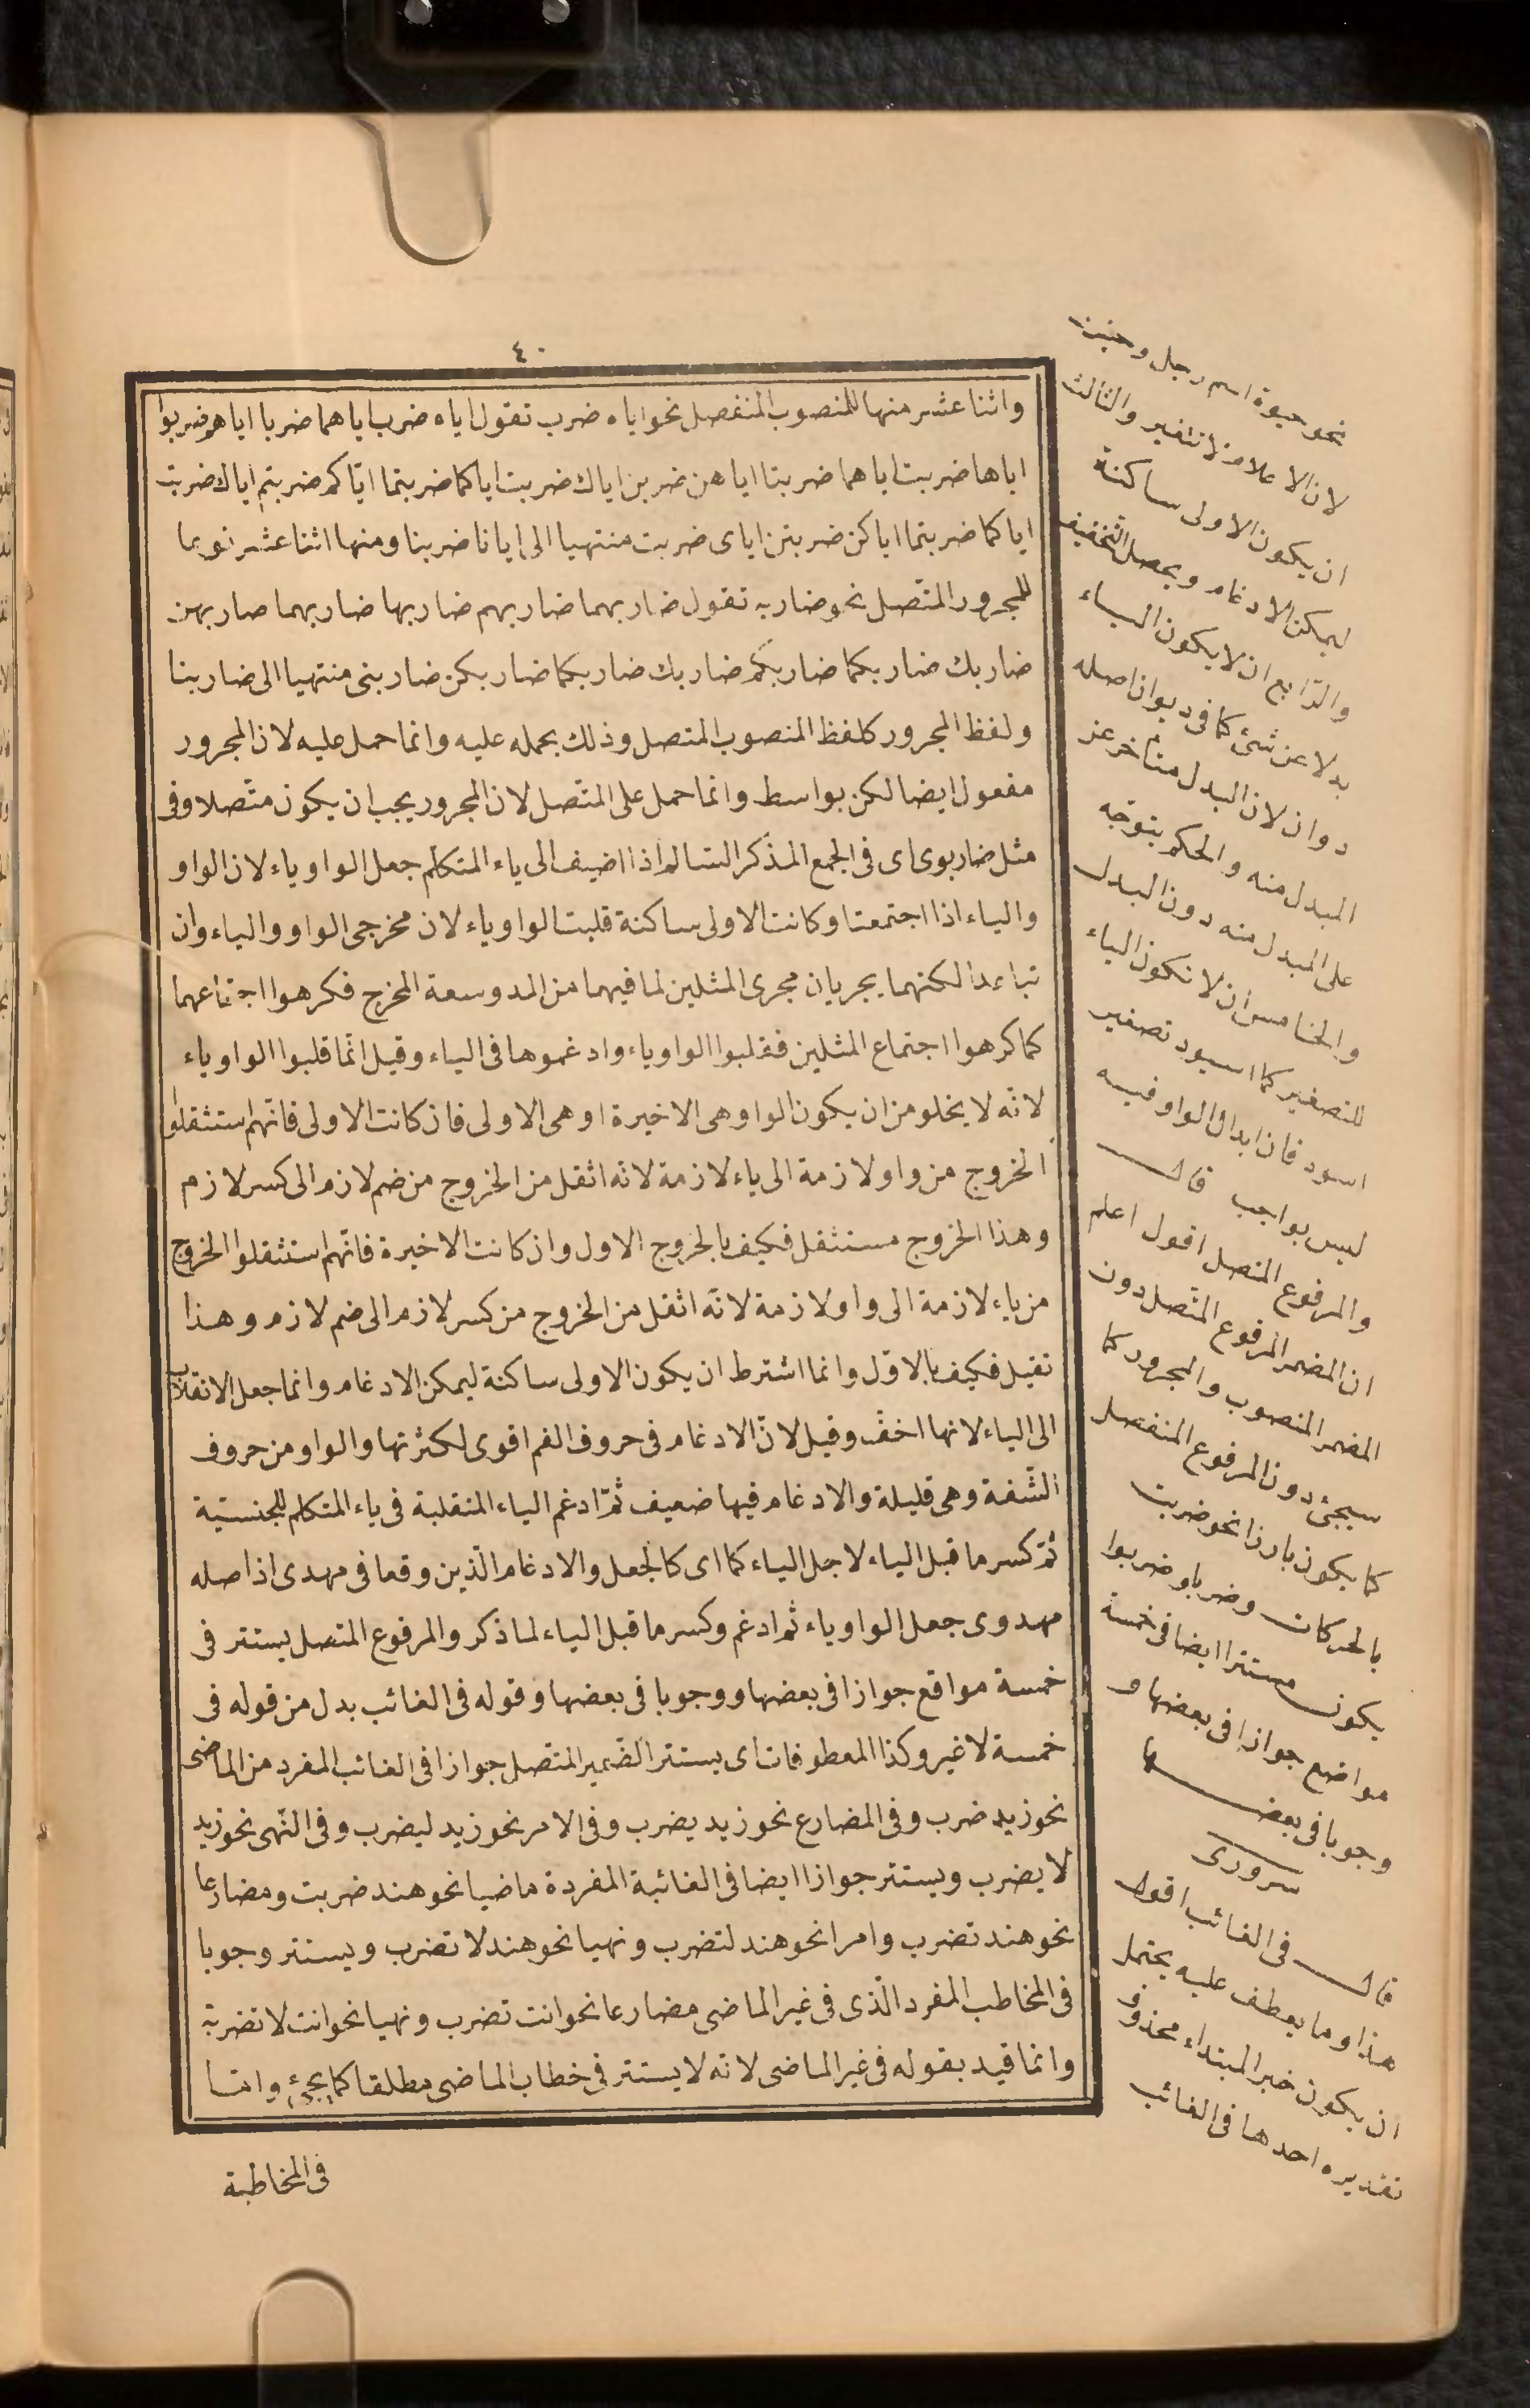 ٤٠
واثنا عشر منها للمنصوب المنفصل نحو اياه ضرب تقول اياه ضرب اياهما ضربا اياهم ضربوا
اياها ضربت اياهما ضربتا اياهن ضربن اياك ضربت اياكما ضربتما اياكم ضربتم اياك ضربت
اياكما ضربتما اياكن ضربتن اياى ضربت منتهيا الى ايانا ضربنا ومنها اثنا عشر نوعا
للمجرور المتصل نحو ضاربه تقول ضاربهما ضاربهم ضاربها ضاربهما ضاربهن
ضاربك ضاربكما ضاربكم ضاربك ضاربكما ضاربكن ضاربنى منتهيا الى ضاربنا
ولفظ المجرور كلفظ المنصوب المتصل وذلك بحمله عليه وانما حمل عليه لان المجرور
مفعول ايضا لكن بواسط وانما حمل على المتصل لان المجرور يجب ان يكون متصلا وفى
مثل ضاربوى اى فى الجمع المذكر السالم اذا اضيف الى ياء المتكلم جعل الواو ياء لان الواو
والياء اذا اجتمعتا وكانت الاولى ساكنة قلبت الواو ياء لان مخرجى الواو والياء وان
تباعدا لكنهما يجريان مجرى المثلين لما فيهما من المد وسعة المخرج فكرهوا اجتماعهما
كما كرهوا اجتماع المثلين فقلبوا الواو ياء وادغموها فى الياء وقيل انما قلبوا الواو ياء
لانه لا يخلو من ان يكون الواو هى الاخيرة او هى الاولى فان كانت الاولى فانهم استثقلوا
الخروج من واو لازمة الى ياء لازمة لانه اثقل من الخروج من ضم لازم الى كسر لازم
وهذا الخروج مستثقل فكيف بالخروج الاول وان كانت الاخيرة فانهم استثقلوا الخروج
من ياء لازمة الى واو لازمة لانه اثقل من الخروج من كسر لازم الى ضم لازم وهذا
ثقيل فكيف بالاول وانما اشترط ان يكون الاولى ساكنة ليمكن الادغام وانما جعل الانقلاب
الى الياء لانها اخف وقيل لان الادغام فى حروف الفم اقوى لكثرتها والواو من حروف
الشفة وهى قليلة والادغام فيها ضعيف ثم ادغم الياء المنقلبة فى ياء المتكلم للجنسية
ثم كسر ما قبل الياء لاجل الياء كما اى كالجعل والادغام الذين وقعا فى مهدى اذ اصله
مهدوى جعل الواو ياء ثم ادغم وكسر ما قبل الياء لما ذكر والمرفوع المتصل يستتر فى
خمسة مواقع جوازا فى بعضها ووجوبا فى بعضها وقوله فى الغائب بدل من قوله فى
خمسة لا غير وكذا المعطوفات اى يستتر الضمير المتصل جوازا فى الغائب المفرد من الماضى
نحو زيد ضرب وفى المضارع نحو زيد يضرب وفى الامر نحو زيد ليضرب وفى النهى نحو زيد
لا يضرب ويستتر جوازا ايضا فى الغائبة المفردة ماضيا نحو هند ضربت ومضارعا
نحو هند تضرب وامرا نحو هند لتضرب ونهيا نحو هند لا تضرب ويستتر وجوبا
فى المخاطب المفرد الذى فى غير الماضى مضارعا نحو انت تضرب ونهيا نحو انت لا تضرب
وانما قيد بقوله فى غير الماضى لانه لا يستتر فى خطاب الماضى مطلقا كما يجئ وانما
فى المخاطبة
نحو حيوة اسم رجل وحينئذ
لان الاعلام لا تتغير والثالث
ان يكون الاولى ساكنة
ليمكن الادغام ويحصل التخفيف
والرابع ان لا يكون الياء
بدلا عن شئ كما فى ديوان اصله
دوان لان البدل متأخر عن
المبدل منه والحكم يتوجه
على المبدل منه دون البدل
والخامس ان لا تكون الياء
للتصغير كما اسيود تصغير
اسود فان ابدال الواو فيه
ليس بواجب قال
والمرفوع المتصل اقول اعلم
ان المضمر المرفوع المتصل دون
المضمر المنصوب والمجرور كما
سيجئ دون المرفوع المنفصل
كما يكون بارزا نحو ضربت
بالحركات وضربا وضربوا
يكون مستترا ايضا فى خمسة
مواضع جوازا فى بعضها و
وجوبا فى بعضها
سرورى
قال فى الغائب اقول
هذا وما يعطف عليه يحتمل
ان يكون خبر المبتداء محذوف
تقديره احدها فى الغائب